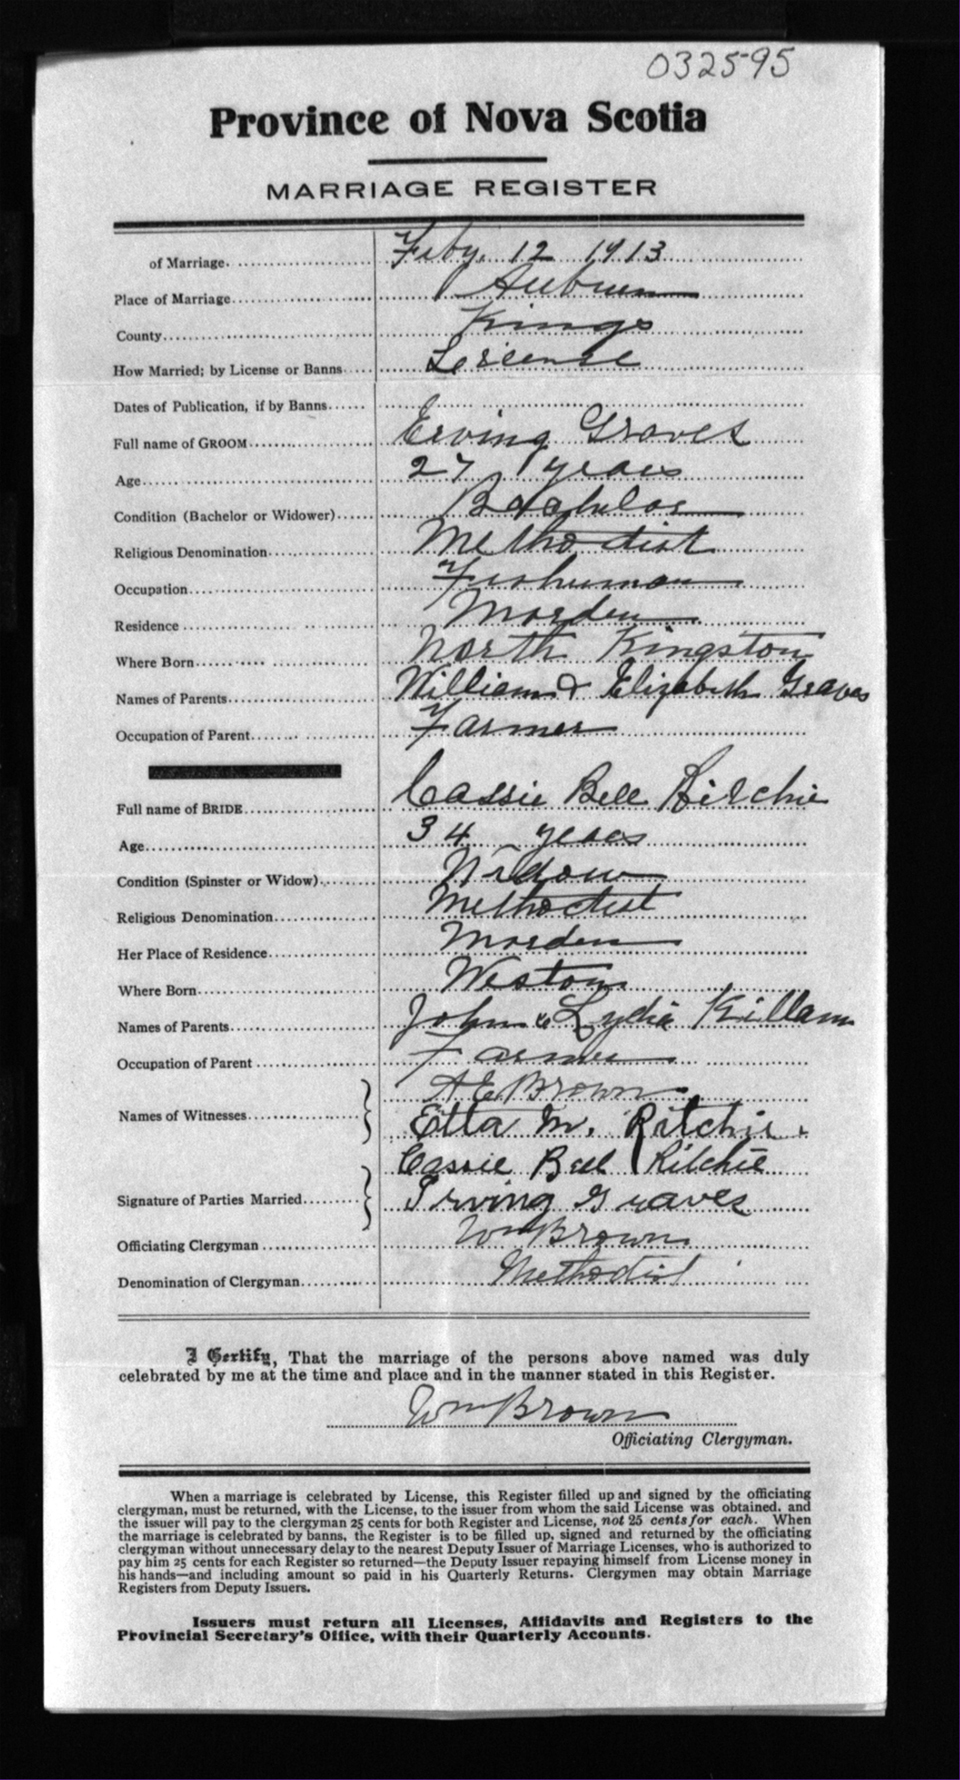 032595
Province of Nova Scotia
MARRIAGE REGISTER
of Marriage. Feby. 12 1913
Place of Marriage Auburn
County Kings
How Married; by License or Banns License
Dates of Publication, if by Banns
Full name of GROOM Erving Graves
Age 27 years
Condition (Bachelor or Widower) Bachelor
Religious Denomination Methodist
Occupation Fisherman
Residence Morden
Where Born North Kingston
Names of Parents William & Elizabeth Graves
Occupation of Parent Farmer
Full name of BRIDE Cassie Bell Ritchie
Age 34 years
Condition (Spinster or Widow) Widow
Religious Denomination Methodist
Her Place of Residence Morden
Where Born Weston
Names of Parents John & Lydia Killam
Occupation of Parent Farmer
A E Brown
Names of Witnesses Etta M. Ritchie.
Cassie Bell Ritchie
Signature of Parties Married Irving Graves
Officiating Clergyman Wm Brown
Denomination of Clergyman Methodist
I Certify, That the marriage of the persons above named was duly
celebrated by me at the time and place and in the manner stated in this Register.
Wm Brown
Officiating Clergyman.
When a marriage is celebrated by License, this Register filled up and signed by the officiating
clergyman, must be returned, with the License, to the issuer from whom the said License was obtained, and
the issuer will pay to the clergyman 25 cents for both Register and License, not 25 cents for each. When
the marriage is celebrated by banns, the Register is to be filled up, signed and returned by the officiating
clergyman without unnecessary delay to the nearest Deputy Issuer of Marriage Licenses, who is authorized to
pay him 25 cents for each Register so returned—the Deputy Issuer repaying himself from License money in
his hands—and including amount so paid in his Quarterly Returns. Clergymen may obtain Marriage
Registers from Deputy Issuers.
Issuers must return all Licenses, Affidavits and Registers to the
Provincial Secretary's Office, with their Quarterly Accounts.